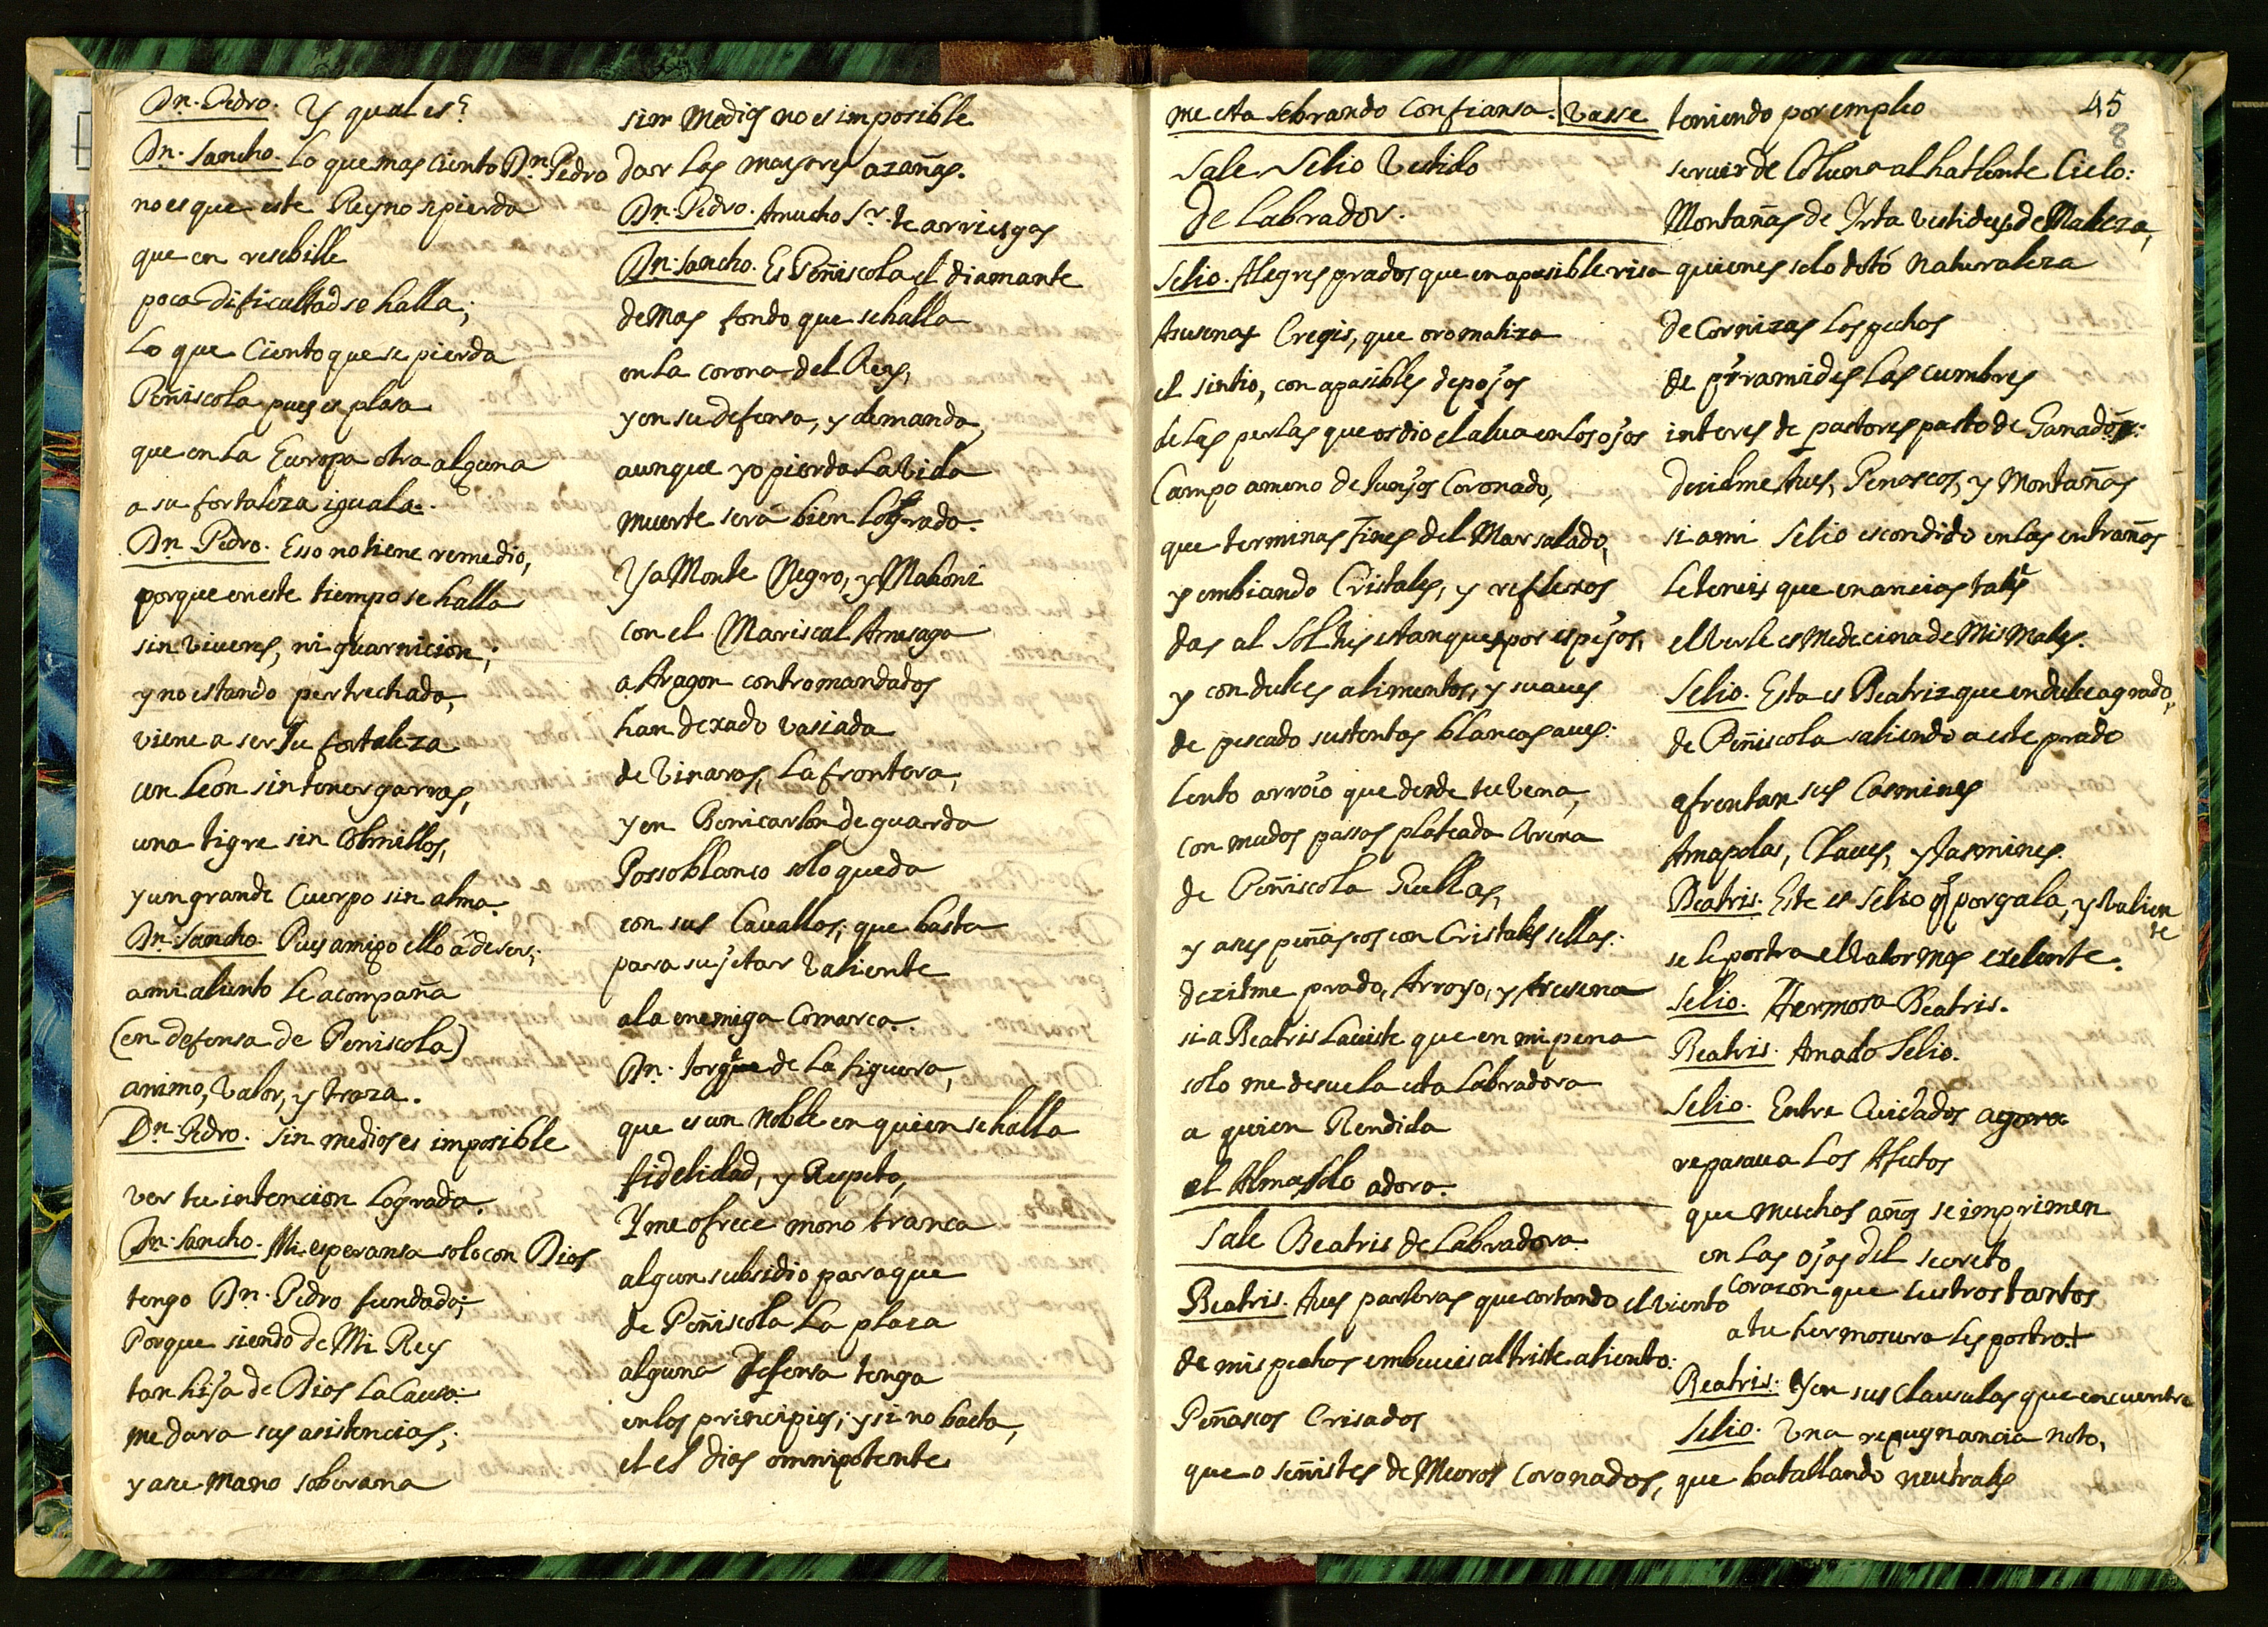 Dn. Pedro. Y qual es?
Dn. Sancho. Lo que mas ciento Dn. Pedro
no es que este Reyno se pierda
que en resebille
poca dificultad se halla;
Lo que Ciento que se pierda
Peñiscola pues es plasa
que en la Europa otra alguna
a su fortaleza iguala.
Dn. Pedro. Esso no tiene remedio,
porque en este tiempo se halla
sin viueres, ni guarnicion;
y no estando pertrechada,
viene a ser su fortaleza
un Leon sin tener garras,
una tigre sin Colmillos,
y un grande Cuerpo sin alma.
Dn. Sancho. Pues amigo ello â de ser;
a mi aliento le acompaña
(en defensa de Peniscola)
animo, valor, y traza.
Dn. Pedro. Sin medios es imposible
ver tu intencion Lograda.
Dn. Sancho. Mi esperansa solo con Dios
tengo Dn. Pedro fundada;
Porque siendo de Mi Rey
tan hija de Dios La Causa
me dara sus asistencias;
y a su mano soberana
sin Medios no es imposible
dar las mayores azañas.
Dn. Pedro. A mucho Sr. te arriesgas
Dn. Sancho. Es Peñiscola el diamante
de Mas fondo que se halla
en la corona del Rey,
y en su defensa, y demanda,
aunque yo pierda la vida
muerte será bien Lograda.
Ya Monte Negro, y Mahoni
con el Mariscal Amesaga
a Aragon contromandados
han dexado vasiada
de Vinaros, La frontera,
y en Benicarlon de guarda
Pozoblanco solo queda
con sus Cauallos; que basta
para sujetar valiente
a la enemiga Comarca.
Dn. Jorque de La figuera,
que es un Noble en quien se halla
fidelidad, y Respeto,
Y me ofrece mano franca
algun subsidio para que
de Peñiscola La plaza
alguna defensa tenga
en los principios; y si no basta,
el es Dios omnipotente
me esta sobrando Confiansa. Vasse
Sale Selio Vestido
de Labrador.
Selio. Alegres prados que en apasible risa
Asusenas Cregis, que oromatiza
el sintio, con apasibles depojos
de Las perlas que os dio el alua en Los ojos
Campo ameno de Juncos Coronado,
que terminas fines del Mar salado,
y embiando Cristales, y reflexos
das al Sol tus estanques por espejos,
y con dulces alimentos, y suaues
de pescado sustentas blancas aues:
Lento arroio que desde tu vena,
con mudos passos plateada Arena
de Peñiscola Huellas,
y a sus peñascos con Cristales sellas:
dezidme prado, Arroyo, y Asusena
si a Beatris La viste que en mi pena
solo me desuela esta Labradora
a quien Rendida
el Alma solo adora.
Sale Beatris de Labradora
Beatris. Aues parleras que cortando el viento
de mis pechos embeueis al triste aliento:
Peñascos Crisados
que o señistes de Muros Coronados,
45
8
teniendo por empleo
seruir de Coluna al hatlente Cielo:
Montañas de Yrta vestidas de Maleza,
quienes solo dotó Naturaleza
de Cornizas Los pechos
de pyramides Las cumbres
interes de pastores pasto de Ganados:
decidme Aues, Penascos, y Montañas
si a mi Selio escondido en las entrañas
Le teneis que en ancias tales
el verle es Medecina de Mis Males.
Selio. Esta es Beatriz que en dulce agrado,
de Peñiscola saliendo a este prado
afrentan sus Carmines
Amapolas, Claues, y Jasmines.
Beatris. Este es Selio q por gala, y valien
te
se le postra el valor Mas exelente.
Selio. Hermosa Beatris.
Beatris. Amado Selio.
Selio. Entre Cuidados agora
repasaua Los Afectos
que Muchos años se imprimen
en Las ojas del secreto
corazon que lustros tantos
a tu hermosura les postrat
Beatris. Y en sus Clausulas que encuentra
Selio. Una repugnancia noto,
que batallando neutrales